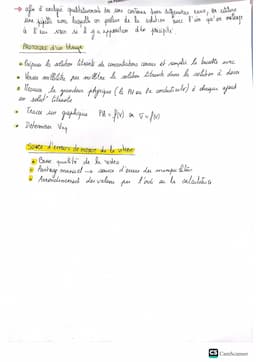 → afin d'analysé qualitativement les ions contenus dans différentes eaux, on utilise
une pipette avec laquelle on de la solution avec l'ion qu'on mélange
à l'eau voir si il y a apparition d'un précipité
Protocole d'un titrage
• Préparer la solution titrante de concentration connue et remplir la burette avec
• Verser millilitre par millilitre la solution titrante dans la solution à doser
• Mesurer la grandeur physique (le PH ou la conductivité) à chaque ajout
en solut° titrante
• Tracer un graphique PH = f(V) ou σ = f(V)
• Déterminer Veq
Source d'erreurs de mesure de la vitesse
• qualité de la vidéo
• Pointage manuel → source d'erreur des
• Arrondissement des valeurs par l'ordi ou la calculatrice
CS CamScanner